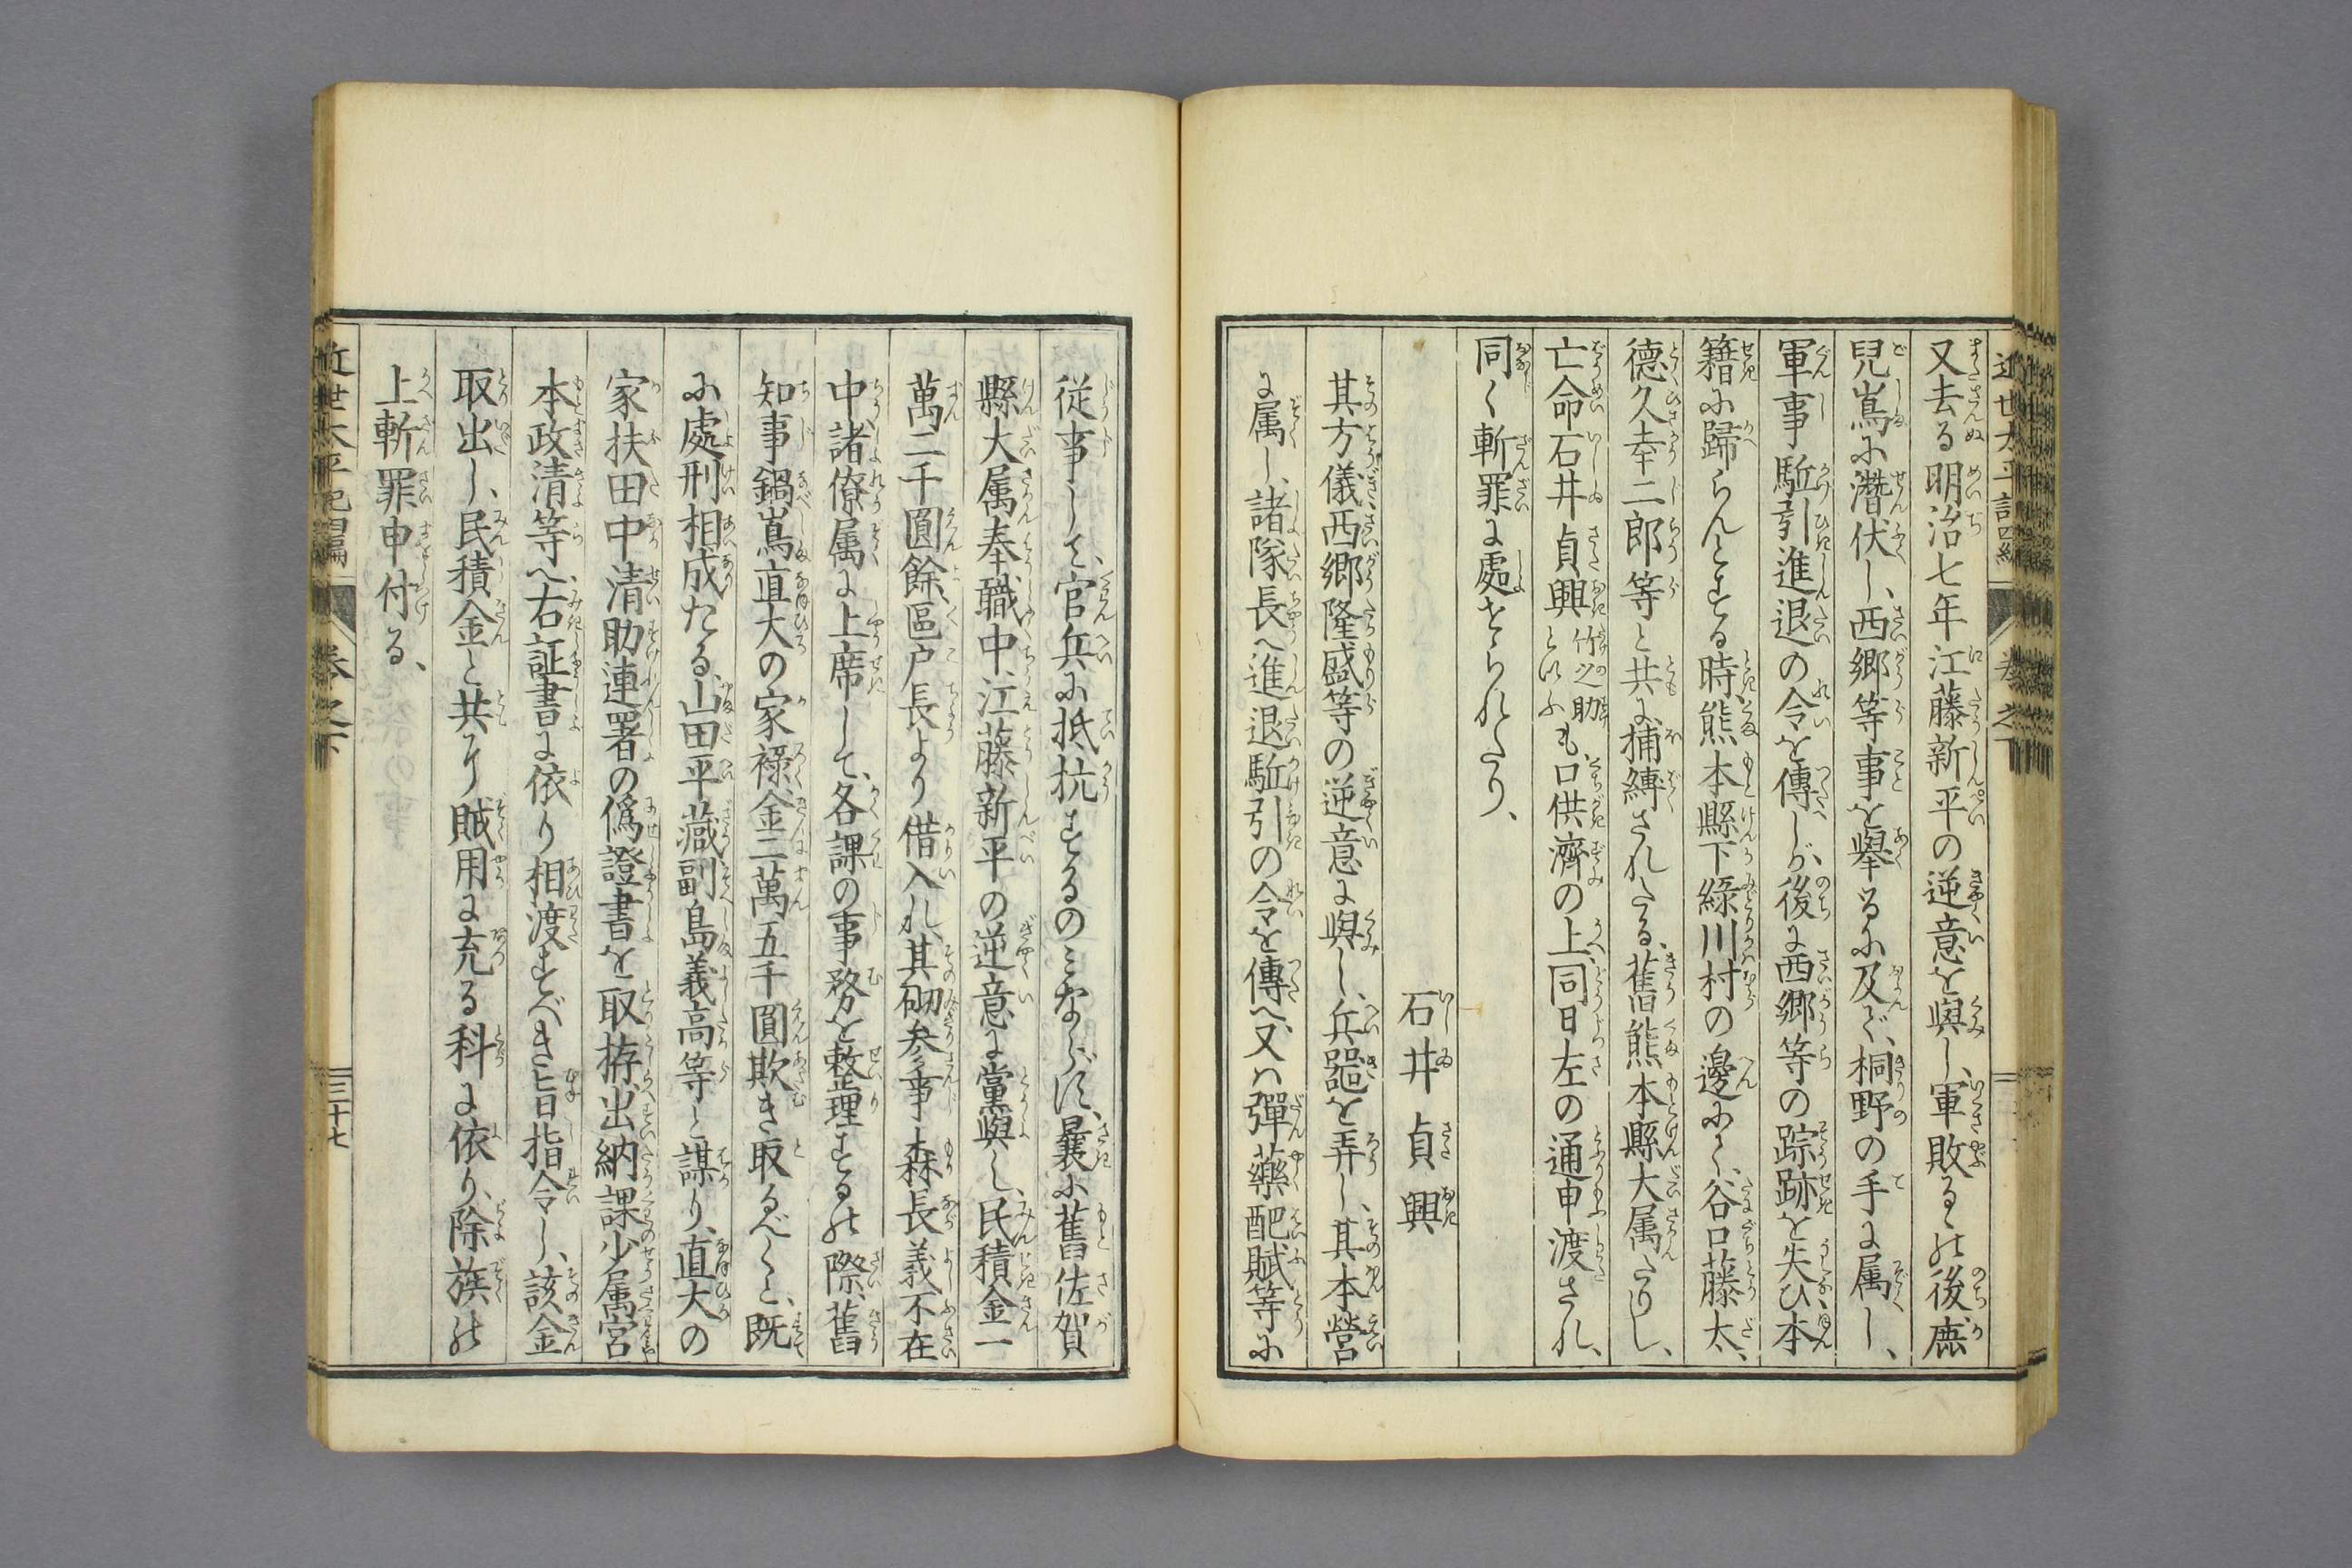 又去る明治七年江藤新平の逆意を與し、軍敗るゝの後、鹿
兒嶌に潛伏し、西郷等事を舉るに及び、桐野の手に属し、
軍事駈引進退の令を傳しが、後に西郷等の踪跡を失ひ、本
籍に歸らんとする時、熊本縣下綠川村の邊にて、谷口藤太、
德久幸二郎等と共に捕縛されたる、舊熊本縣大属たりし、
亡命石井貞興竹之助といふも、口供濟の上、同日左の通申渡され、
同く斬罪に處せられたり、
石井貞興
其方儀、西郷隆盛等の逆意に與し、兵器を弄し、其本營
に属し、諸隊長へ進退駈引の令を傳へ、又ハ彈藥配賦等に
從事して、官兵に抵抗するのミならず、曩に舊佐賀
縣大属奉職中、江藤新平の逆意に黨與し、民積金一
萬二千圓餘、區户長より借入れ、其砌参事森長義不在
中、諸僚属に上席して、各課の事務を整理するの際、舊
知事鍋嶌直大の家祿、金二萬五千圓欺き取るべくと、既
に處刑相成たる、山田平藏副島義高等と謀り、直大の
家扶田中清助連署の僞證書を取拵、出納課少属宮
本政清等へ、右証書に依り相渡すべき旨指令し、該金
取出し、民積金と共に賊用に充る科に依り、除族の
上斬罪申付る、
近世太平記四編
卷之下
三十七